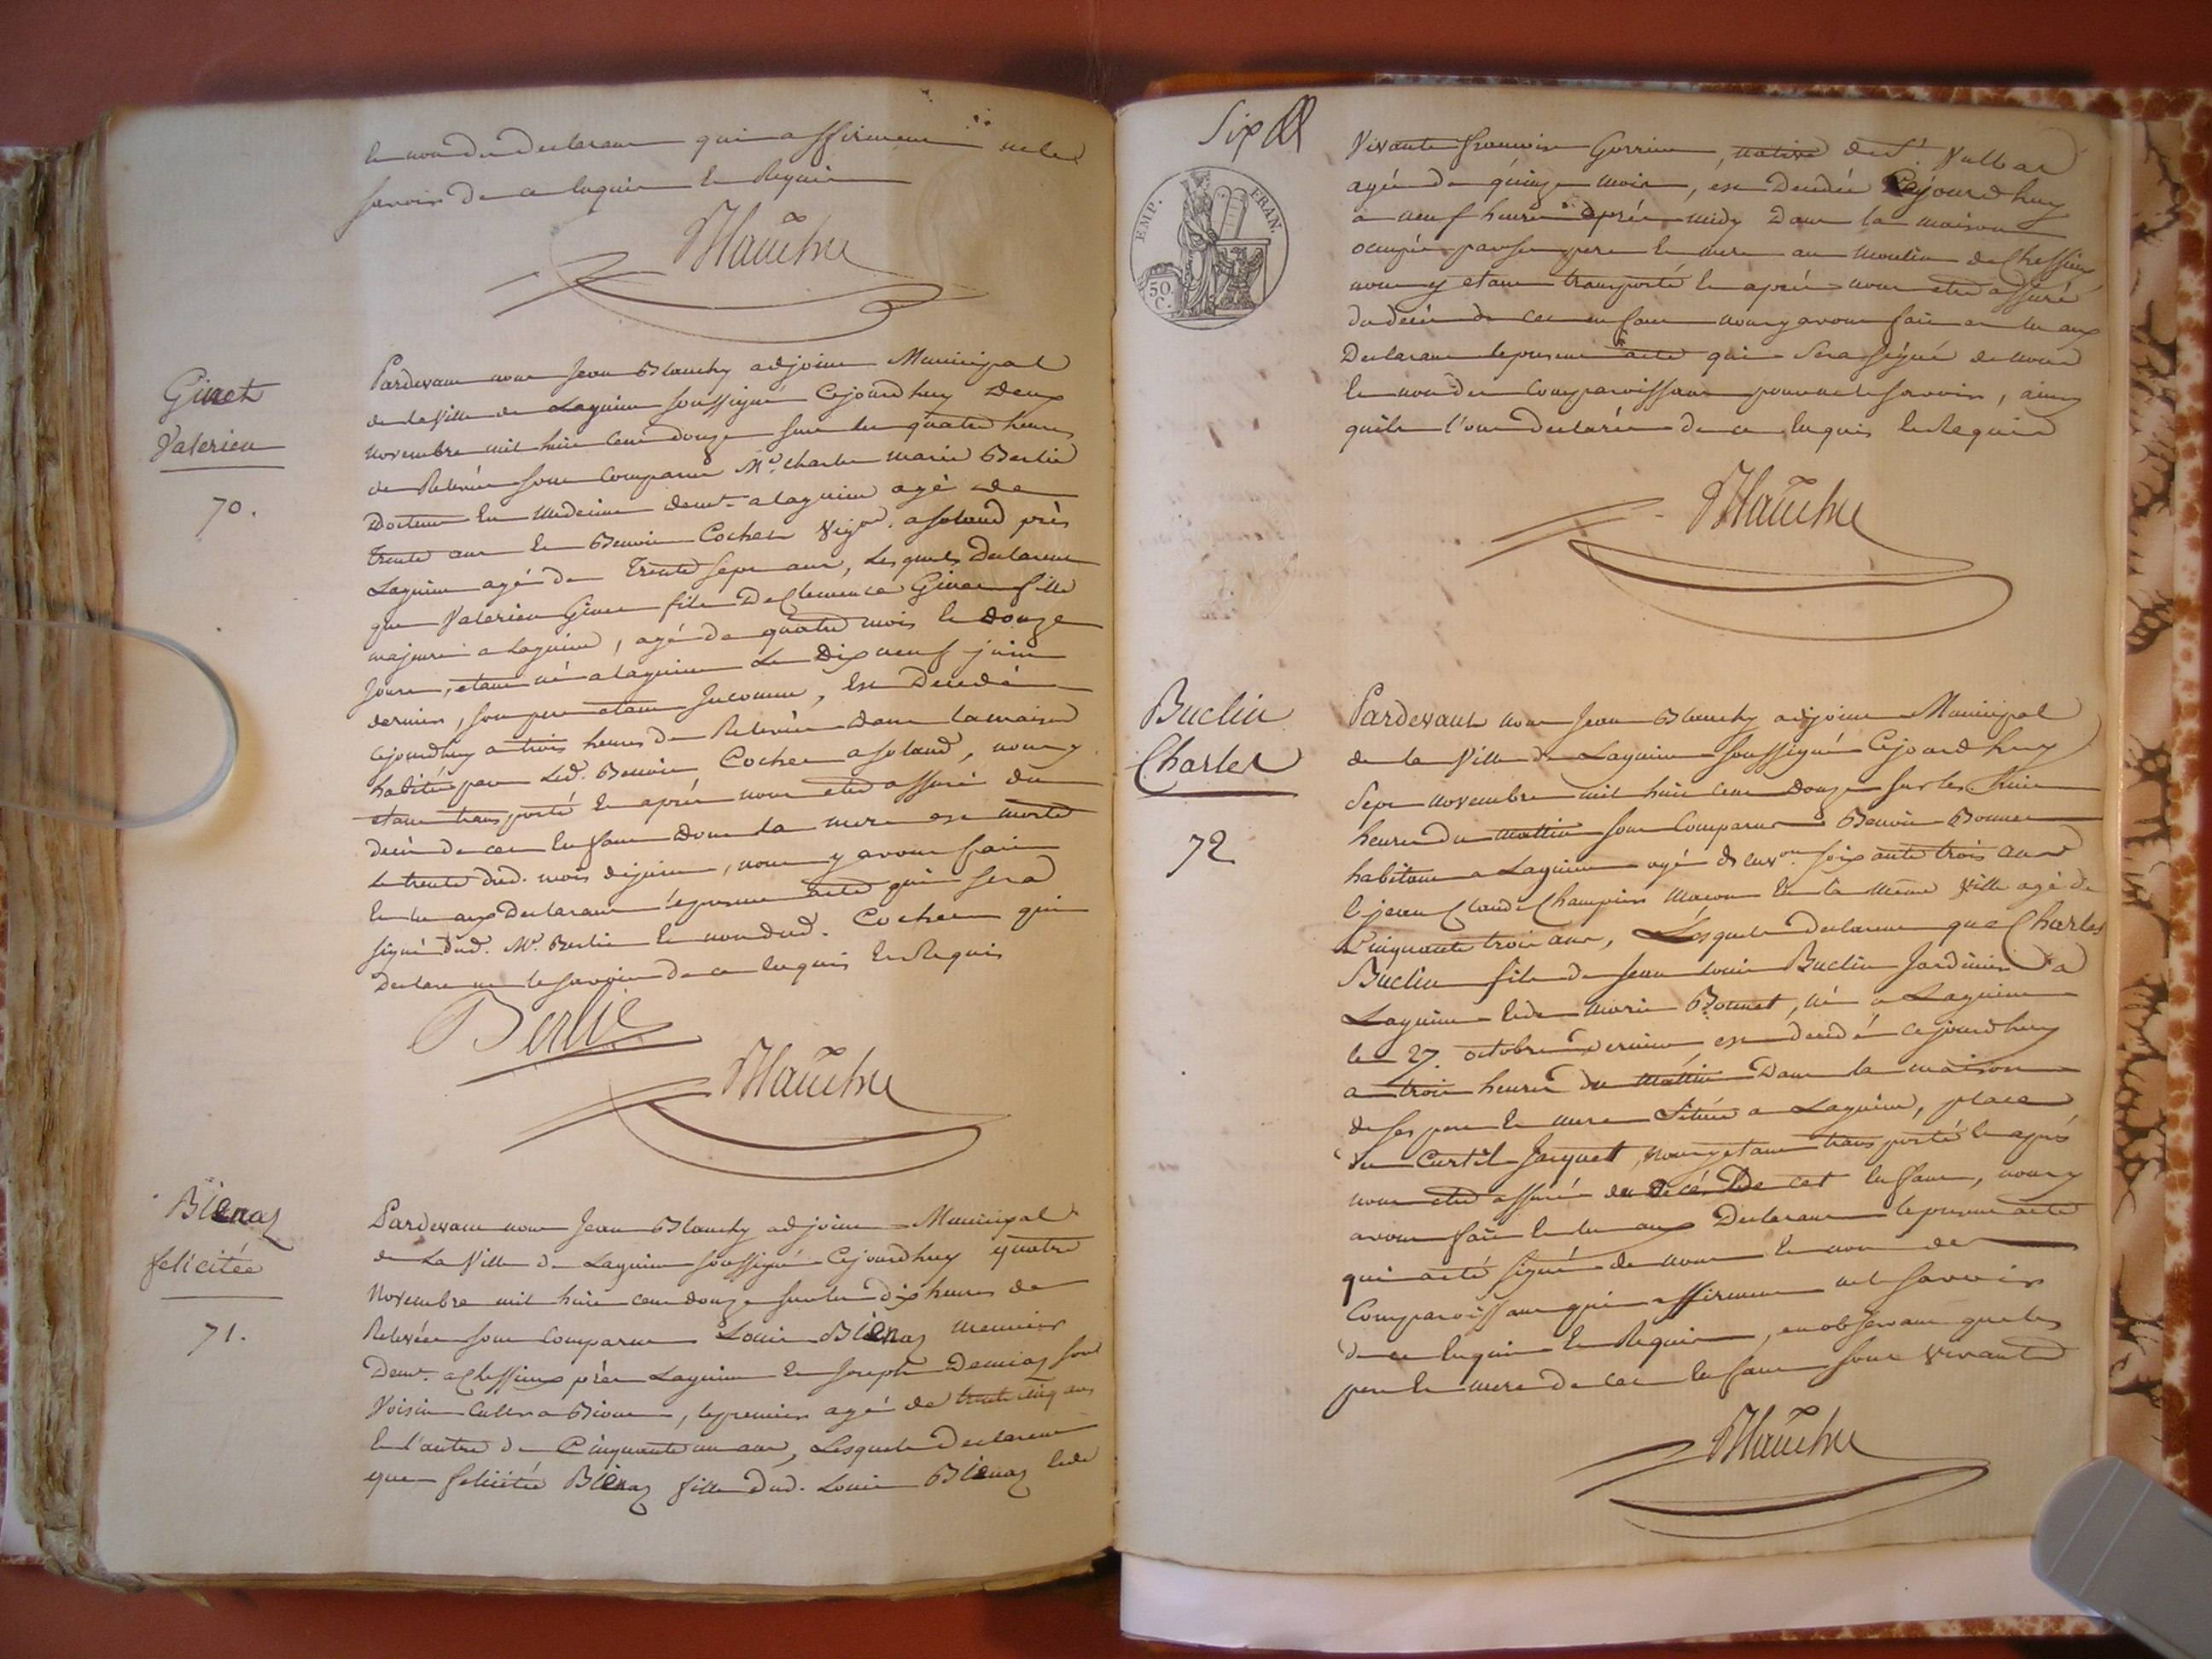 et non des declarans qui affirment ne le
savoir de ce enquis et Requis
Blanchy
Ginet
Valerien
70.
Pardevant nous Jean Blanchy adjoint Municipal
de la Ville de Lagnieu soussigné Cejourdhuy Deux
novembre mil huit cent douze sur les quatre heures
de Relevée sont Comparus Mr. Charles Marie Berlie
Docteur En Medecine demt. a lagnieu agé de
trente ans et Benoit Cochet Vign. a soland près
Lagnieu agé de trente sept ans, Lesquels Declarent
que Valerien Ginet fils De Clemence Ginet fille
majeure a Lagnieu, agé de quatre mois et douze
jours, etant né a lagnieu Le Dix neuf juin
dernier, son pere etant Inconnu, Est Decedé
cejourdhuy a trois heures de Relevée dans la maison
habitée par Led. Benoit Cochet a soland, nous y
etant transporté et après nous etre assuré du
decès de cet Enfant dont la mere est morte
le trente dud. mois de juin, nous y avons fait
et lu aux Declarans le present acte qui sera
signé dud. Mr. Berlie et non dud. Cochet qui
Declare ne le savoir de ce Enquis et Requis
Berlie
Blanchy
Blénaz
felicitée
71.
Pardevant nous Jean Blanchy adjoint Municipal
de La Ville de Lagnieu soussigné Cejourdhuy quatre
Novembre mil huit cent douze sur les dix heures de
Relevée sont Comparus Louis Blénaz meunier
Demt. a Chessieux près Lagnieu et Joseph son
Voisin, le premier agé de trente cinq ans
et l'autre de Cinquante un ans, Lesquels Declarent
que felicitée Blénaz fille Dud. Louis Blénaz et de
Six
EMP. FRAN.
50. C.
Vivante françoise, native de St. Vulbas
agée de quinze mois, est Decedée Cejourdhuy
a neuf heures après midy Dans la maison
occupée par ses pere et mere au moulin de Chessieux
nous y etant transporté et après nous etre assuré
du decès de cet enfant nous y avons fait et lu aux
Declarans le present acte qui Sera signé de nous
et non des Comparoissans pour ne le savoir, ainsy
qu'ils l'ont Declaré de ce Enquis et Requis
Blanchy
Buclin
Charles
72
Pardevant nous Jean Blanchy adjoint Municipal
de la Ville de Lagnieu soussigné Cejourdhuy
Sept novembre mil huit cent Douze sur les huit
heures du mattin sont Comparus Benoit Bonnet
habitant a Lagnieu agé d'envon. soixante trois ans
et jean Claude Champier Macon En la même Ville agé de
Cinquante trois ans, Lesquels Declarent que Charles
Buclin fils de Jean Louis Buclin Jardinier a
Lagnieu et de Marie Bonnet, né a Lagnieu
le 27 octobre dernier est decedé cejourdhuy
a trois heures du mattin Dans la maison
de ses pere et mere Située a Lagnieu, place
du Curtil Jacquet, nous y etant transporté et après
nous etre assuré du decés De cet Enfant, nous y
avons fait et lu aux Declarans le present acte
qui a eté signé de nous et non de
Comparoissans qui affirment ne le savoir
de ce Enquis et Requis, en observant que les
pere et mere de cet Enfant sont vivants
Blanchy